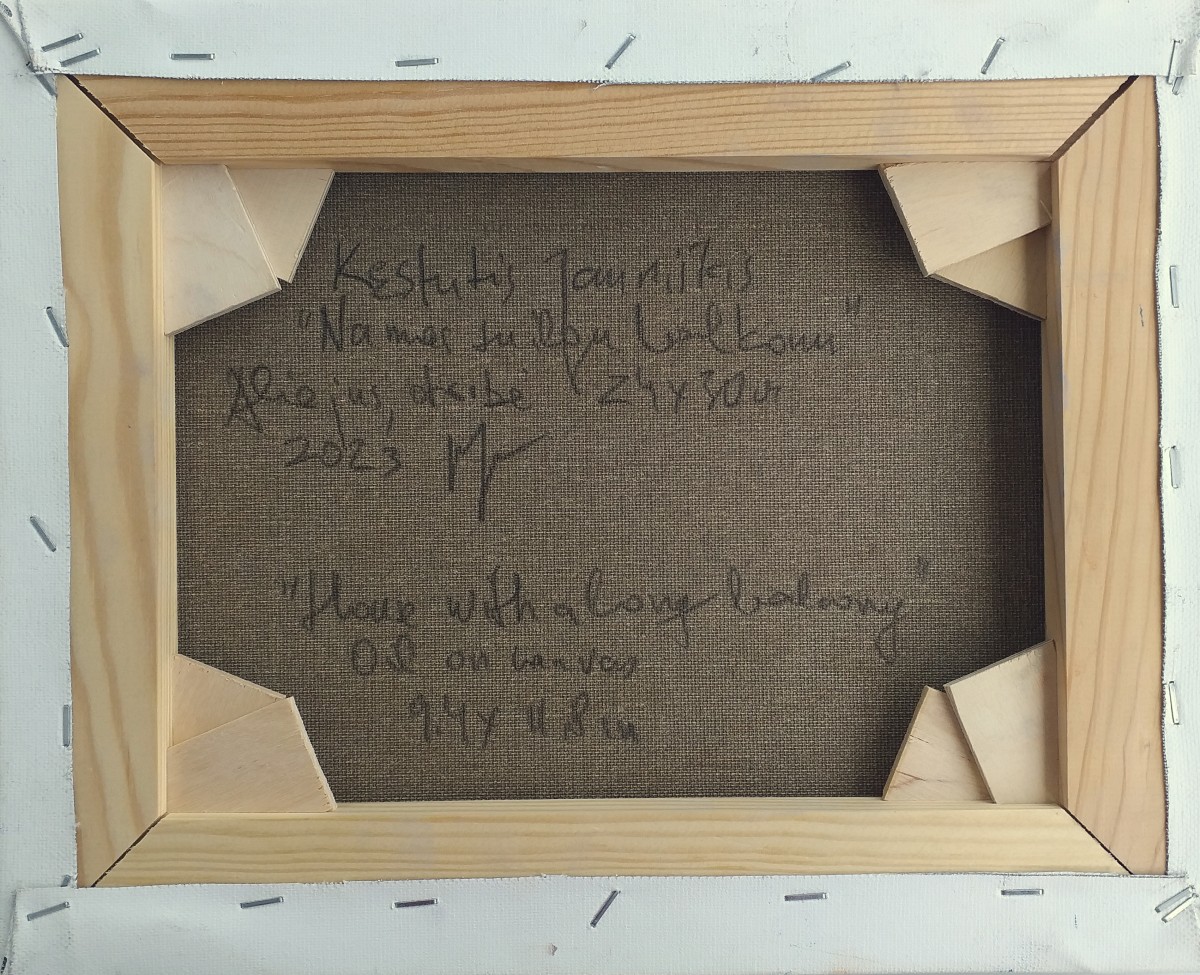 Kęstutis Jauniškis
"Namas su ilgu balkonu"
Aliejus, drobė 24x30cm
2023
"House with a long balcony"
Oil on canvas
9.4x11.8 in